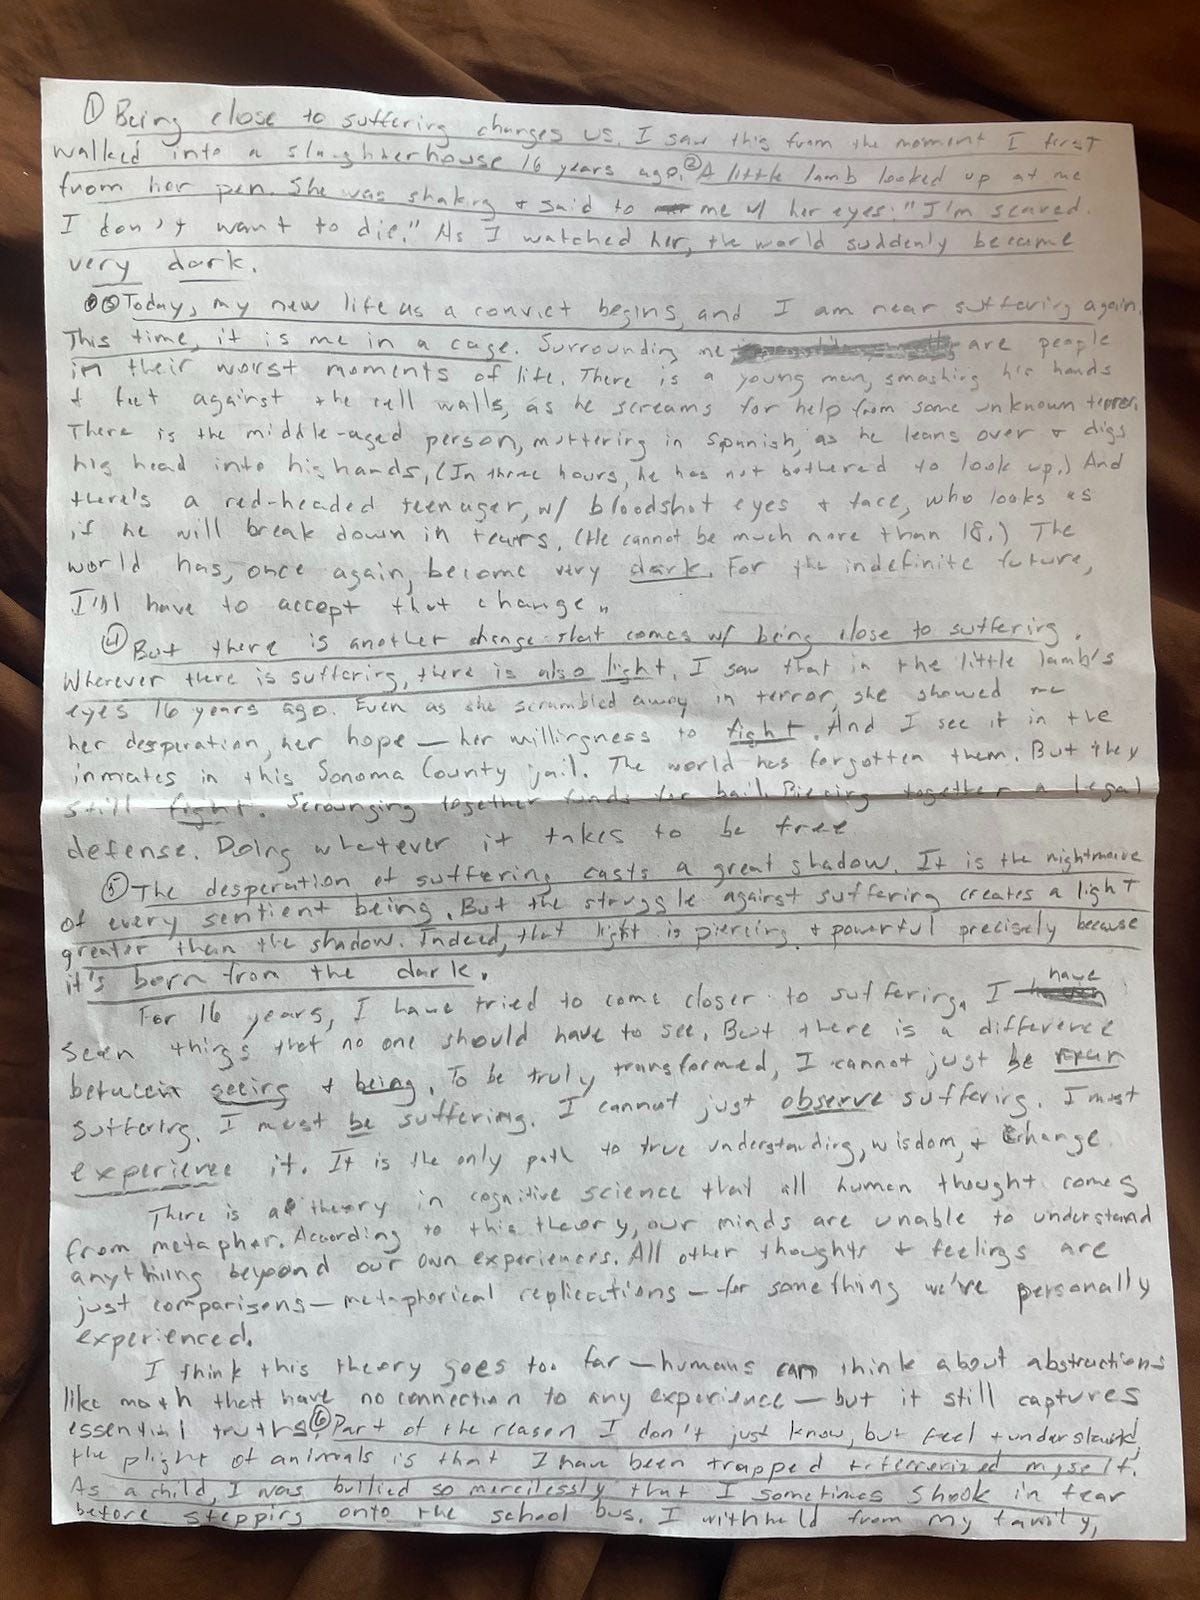 ① Being close to suffering changes us. I saw this from the moment I first
walked into a slaughterhouse 16 years ago. ② A little lamb looked up at me
from her pen. She was shaking + said to me w/ her eyes: "I'm scared.
I don't want to die." As I watched her, the world suddenly became
very dark.
③ Today, my new life as a convict begins, and I am near suffering again.
This time, it is me in a cage. Surrounding me are people
in their worst moments of life. There is a young man, smashing his hands
+ feet against the cell walls, as he screams for help from some unknown terror.
There is the middle-aged person, muttering in Spanish, as he leans over + digs
his head into his hands, (In three hours, he has not bothered to look up.) And
there's a red-headed teenager, w/ bloodshot eyes + face, who looks as
if he will break down in tears. (He cannot be much more than 18.) The
world has, once again, become very dark. For the indefinite future,
I'll have to accept that change.
④ But there is another change that comes w/ being close to suffering.
Wherever there is suffering, there is also light. I saw that in the little lamb's
eyes 16 years ago. Even as she scrambled away in terror, she showed me
her desperation, her hope — her willingness to fight. And I see it in the
inmates in this Sonoma County jail. The world has forgotten them. But they
still fight. Scrounging together funds for bail. Piecing together a legal
defense. Doing whatever it takes to be free
⑤ The desperation of suffering casts a great shadow. It is the nightmare
of every sentient being. But the struggle against suffering creates a light
greater than the shadow. Indeed, that light is piercing + powerful precisely because
it's born from the dark.
For 16 years, I have tried to come closer to suffering. I have
seen things that no one should have to see. But there is a difference
between seeing + being. To be truly transformed, I cannot just be near
suffering. I must be suffering. I cannot just observe suffering. I must
experience it. It is the only path to true understanding, wisdom, + change
There is a theory in cognitive science that all human thought comes
from metapher. According to this theory, our minds are unable to understand
anything beyond our own experiences. All other thoughts + feelings are
just comparisons — metaphorical replications — for something we've personally
experienced.
I think this theory goes too far — humans can think about abstractions
like math that have no connection to any experience — but it still captures
essential truths. ⑥ Part of the reason I don't just know, but feel + understand,
the plight of animals is that I have been trapped + terrorized myself.
As a child, I was bullied so mercilessly that I sometimes shook in fear
before stepping onto the school bus. I withheld from my family,